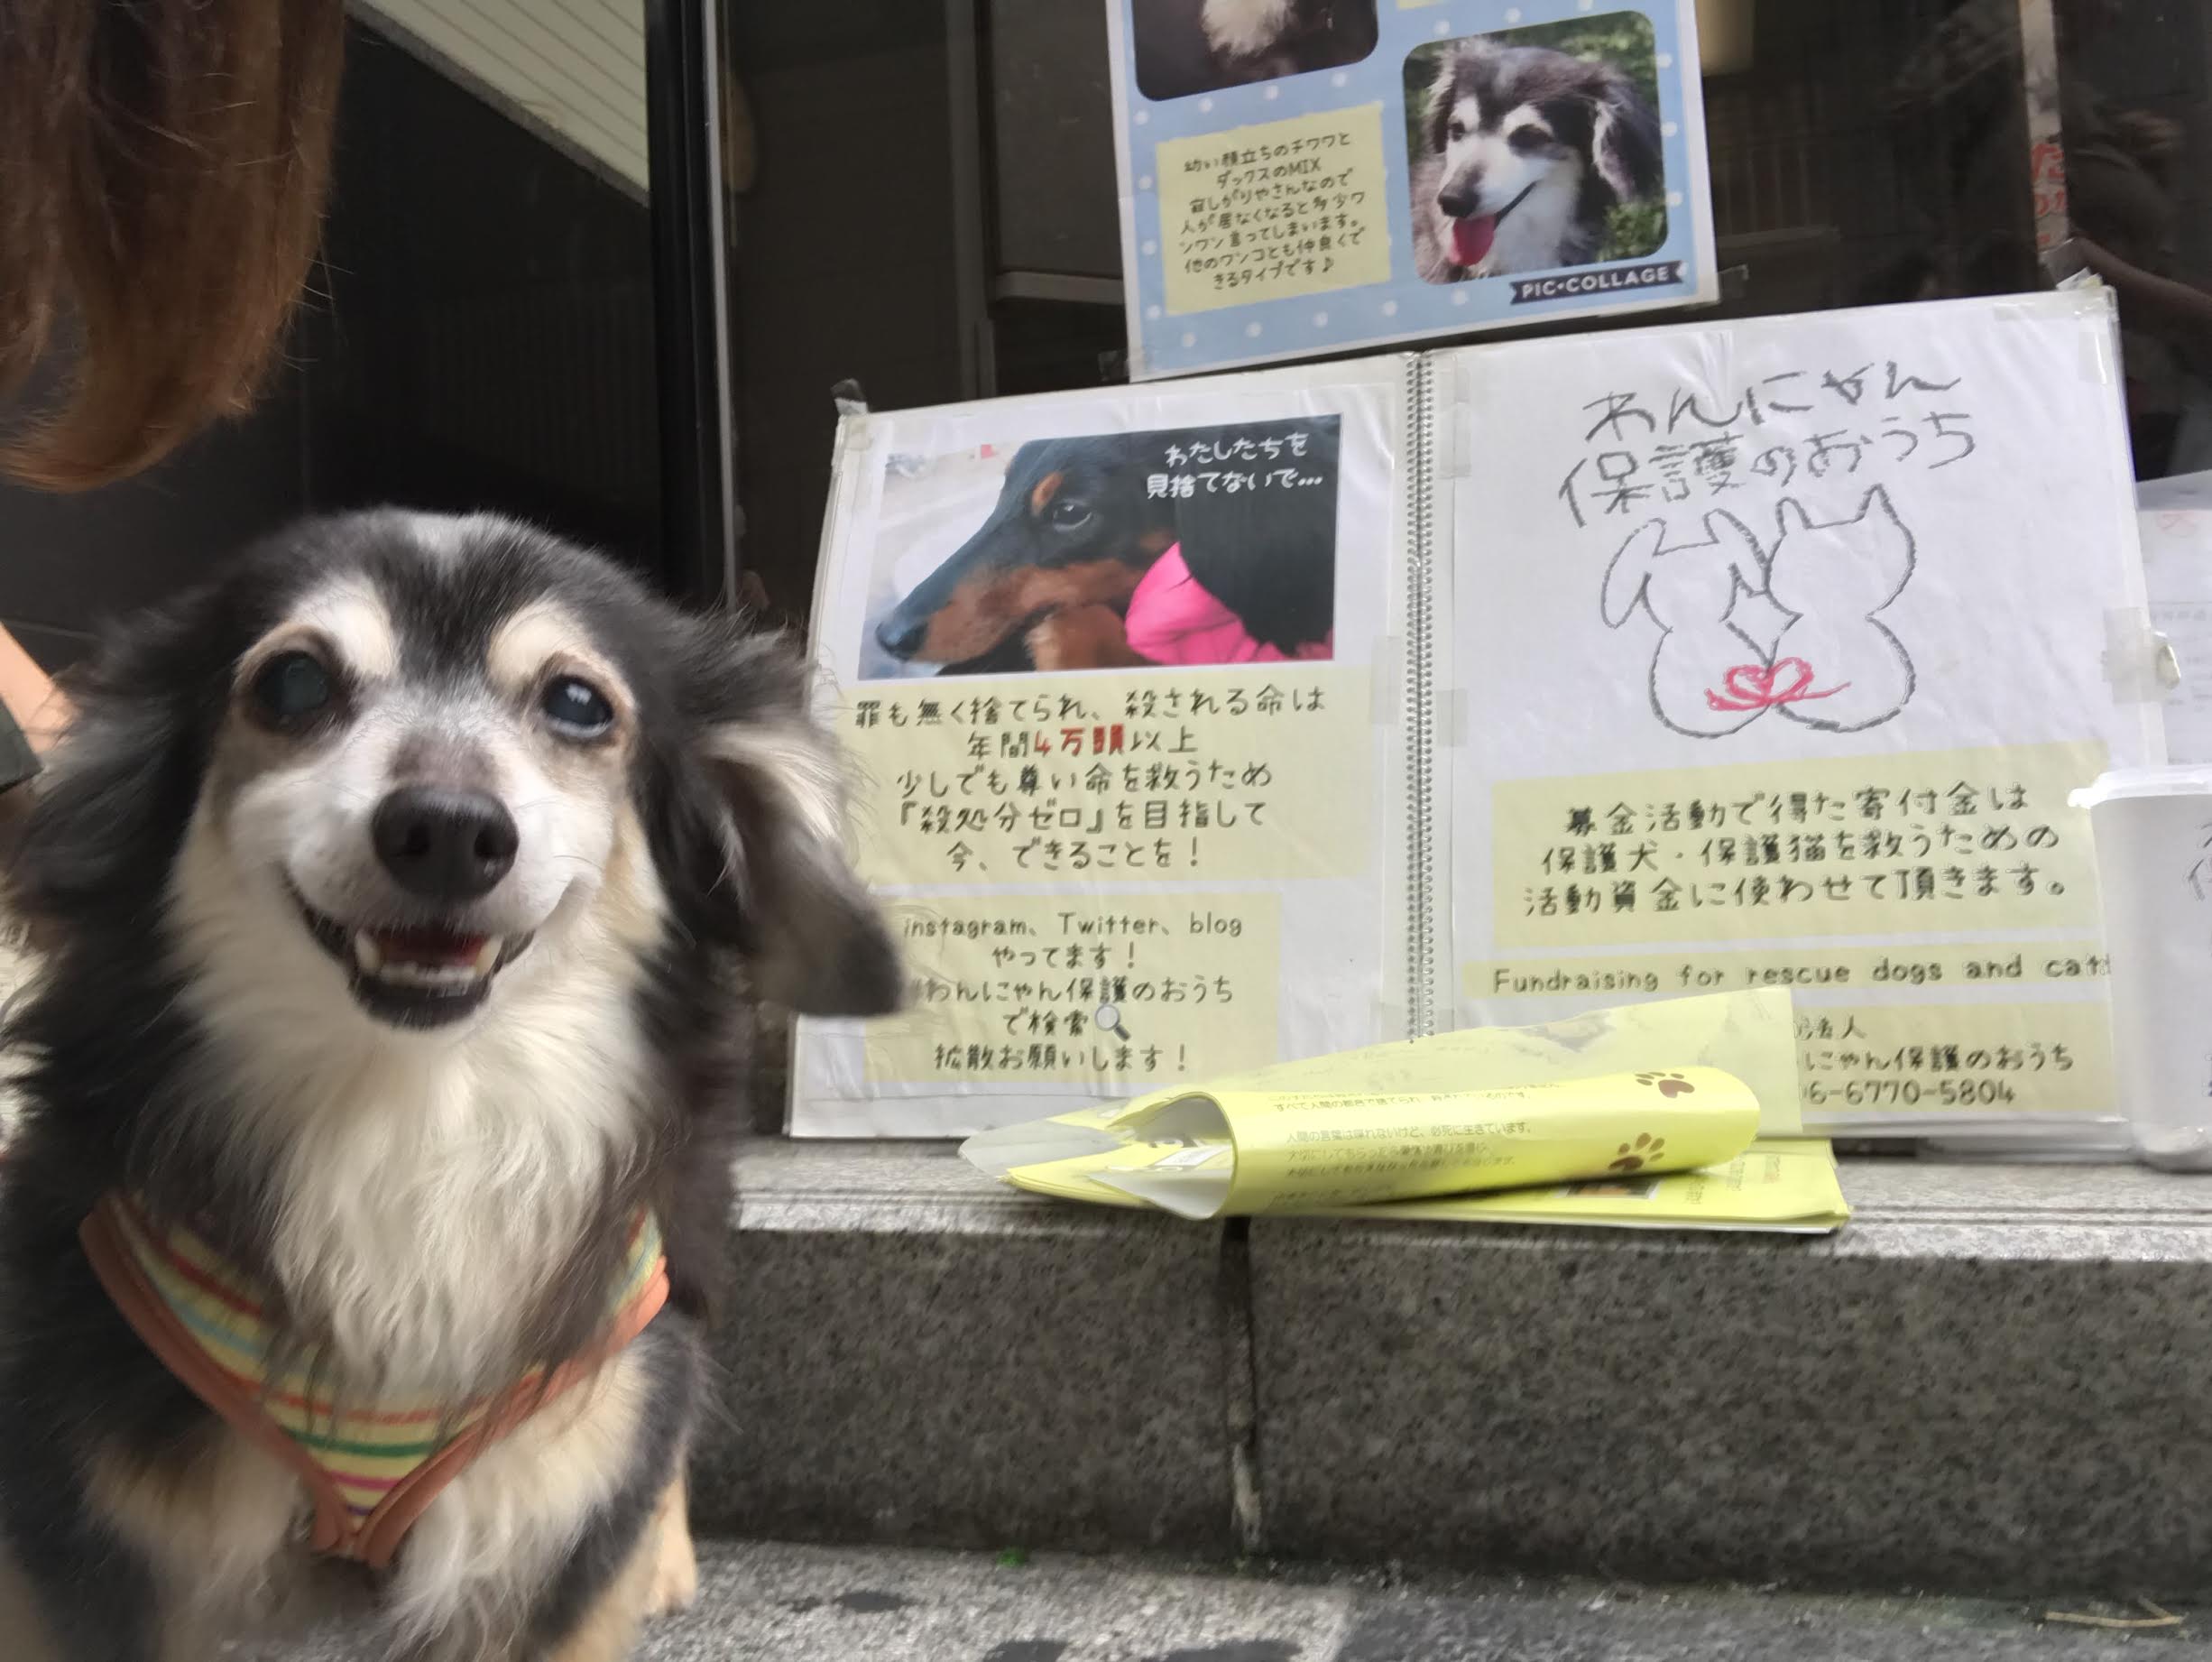 幼い顔立ちのチワワと
ダックスのMIX
寂しがりやさんなので
人が居なくなると多少ワ
ンワン言ってしまいます。
他のワンコとも仲良くで
きるタイプです♪
PIC•COLLAGE
わたしたちを
見捨てないで...
罪も無く捨てられ、殺される命は
年間4万頭以上
少しでも尊い命を救うため
『殺処分ゼロ』を目指して
今、できることを！
instagram、Twitter、blog
やってます！
わんにゃん保護のおうち
で検索
拡散お願いします！
わんにゃん
保護のおうち
募金活動で得た寄付金は
保護犬・保護猫を救うための
活動資金に使わせて頂きます。
Fundraising for rescue dogs and cats
法人
にゃん保護のおうち
06-6770-5804
すべて人間の都合で捨てられ
人間の言葉は喋れないけど、必死に生きています。